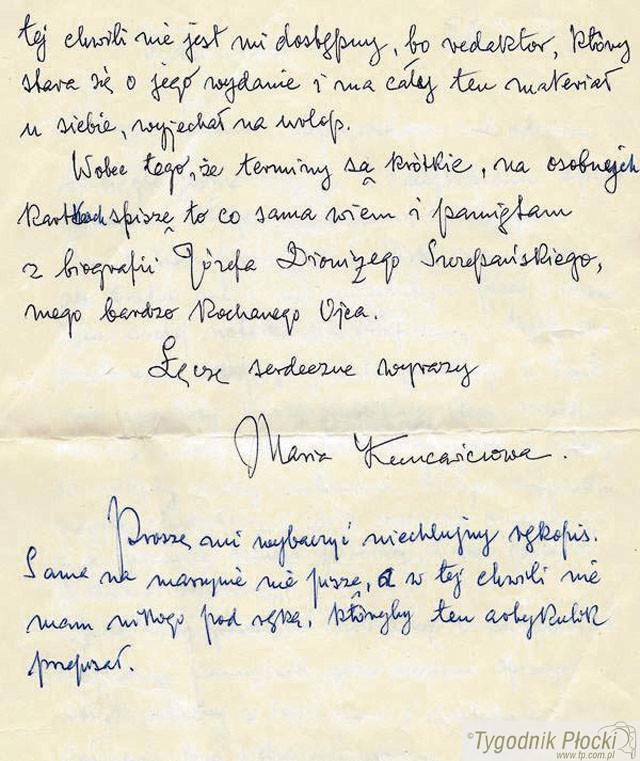 tej chwili nie jest mi dostępny, bo redaktor, który
stara się o jego wydanie i ma cały ten materiał
u siebie, wyjechał na urlop.
Wobec tego, że terminy są krótkie, na osobnych
kartkach spiszę to co sama wiem i pamiętam
z biografii Józefa Dionizego Szczepańskiego,
mego bardzo kochanego Ojca.
Łączę serdeczne wyrazy
Maria Kuncewiczowa.
Proszę mi wybaczyć niechlujny rękopis.
Sama na maszynie nie piszę, a w tej chwili nie
mam nikogo pod ręką, któryby ten artykulik
przepisał.
©Tygodnik Płocki
www.tp.com.pl